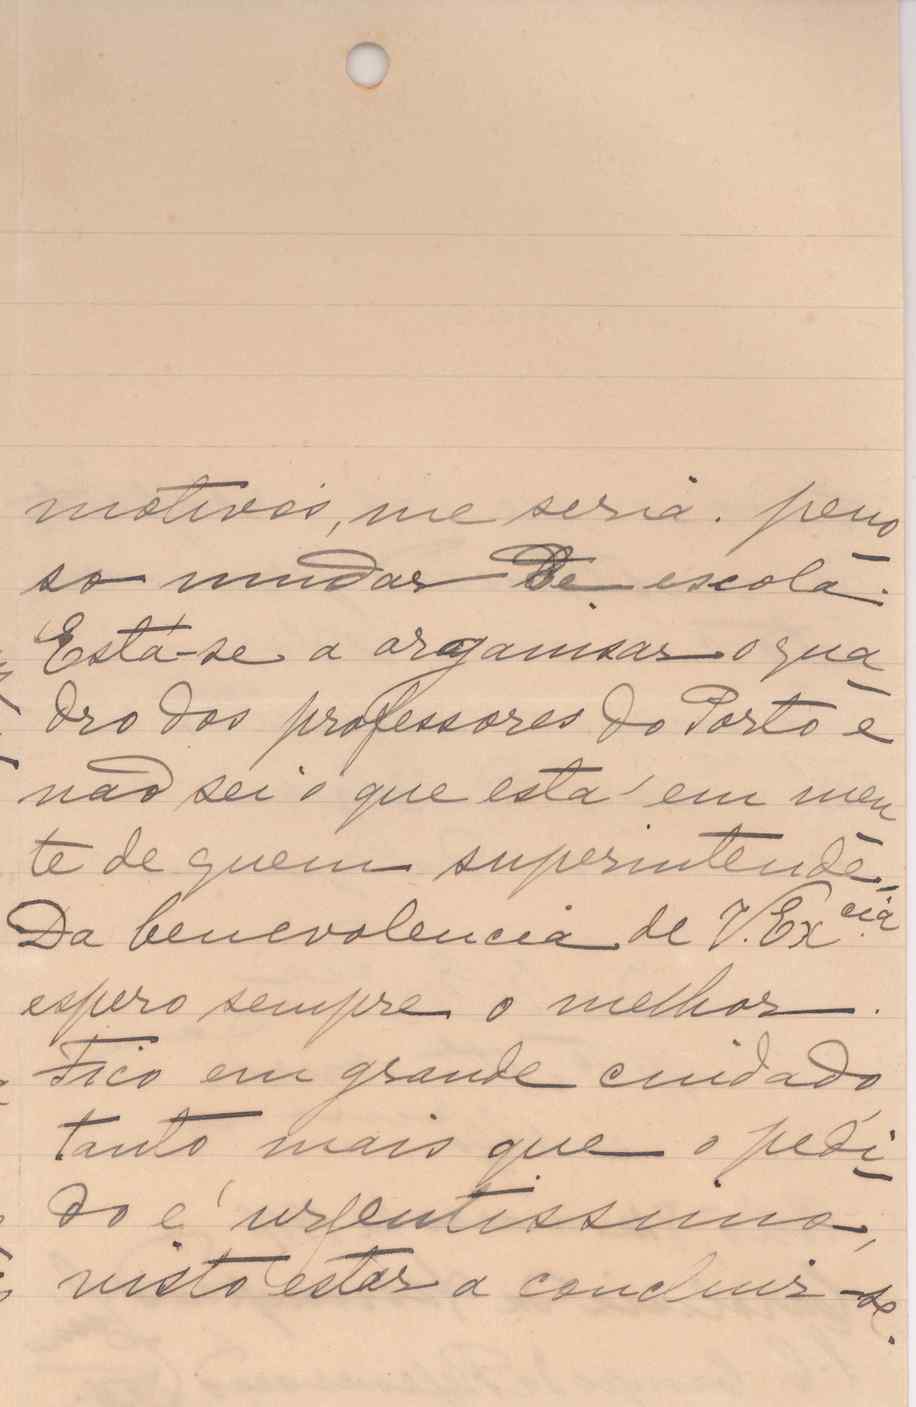 motivos, me seria. peno
so mudar de escola.
Está-se a organisar o qua
dro dos professores do Porto e
não sei o que está em men
te de quem superintende.
Da benevolencia de V. Ex.cia
espero sempre o melhor.
Fico em grande cuidado
tanto mais que o pedi
do é urgentissimo,
visto estar a concluir-se.